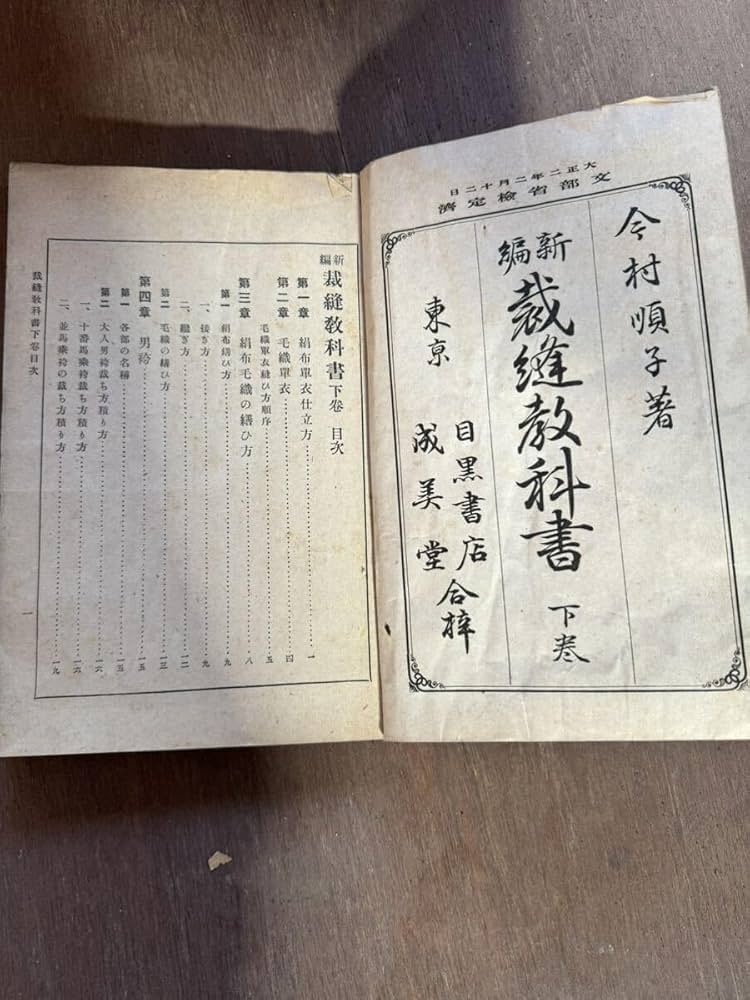 大正二年二月十二日
文部省檢定濟
今村順子著
新編 裁縫教科書 下卷
東京 目黒書店
成美堂 合梓
新編 裁縫教科書 下卷 目次
第一章 絹布單衣仕立方……一
第二章 毛織單衣……四
毛織單衣縫ひ方順序……五
第三章 絹布毛織の繕ひ方……八
第一 絹布繕ひ方……九
一、接ぎ方……九
二、繼ぎ方……一二
第二 毛織の繕ひ方……一三
第四章 男袴……一五
第一 各部の名稱……一五
第二 大人男袴裁ち方積り方……一六
一、十番馬乘袴裁ち方積り方……一六
二、並馬乘袴の裁ち方積り方……一九
裁縫教科書下卷目次
一